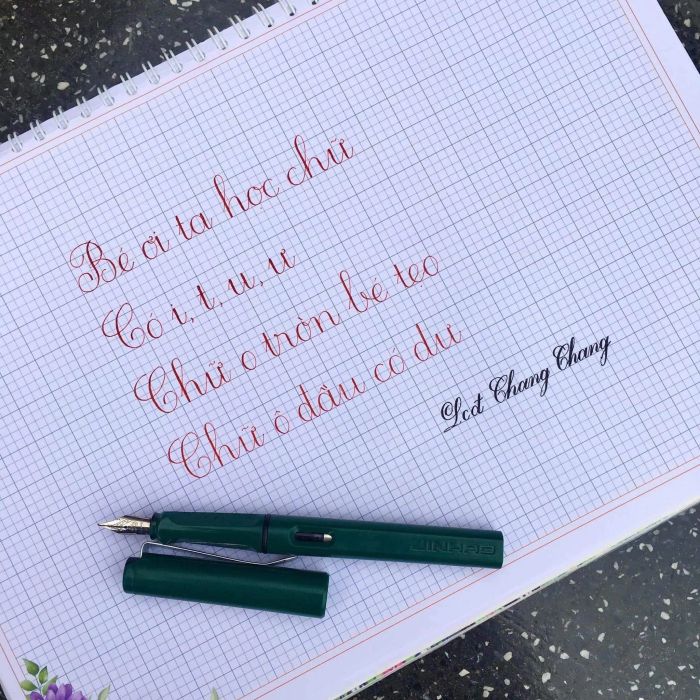 Bé ơi ta học chữ
Có i, t, u, ư
Chữ o tròn bé tẹo
Chữ ô đầu có dư
Lcđ Chang Chang
JINHAO